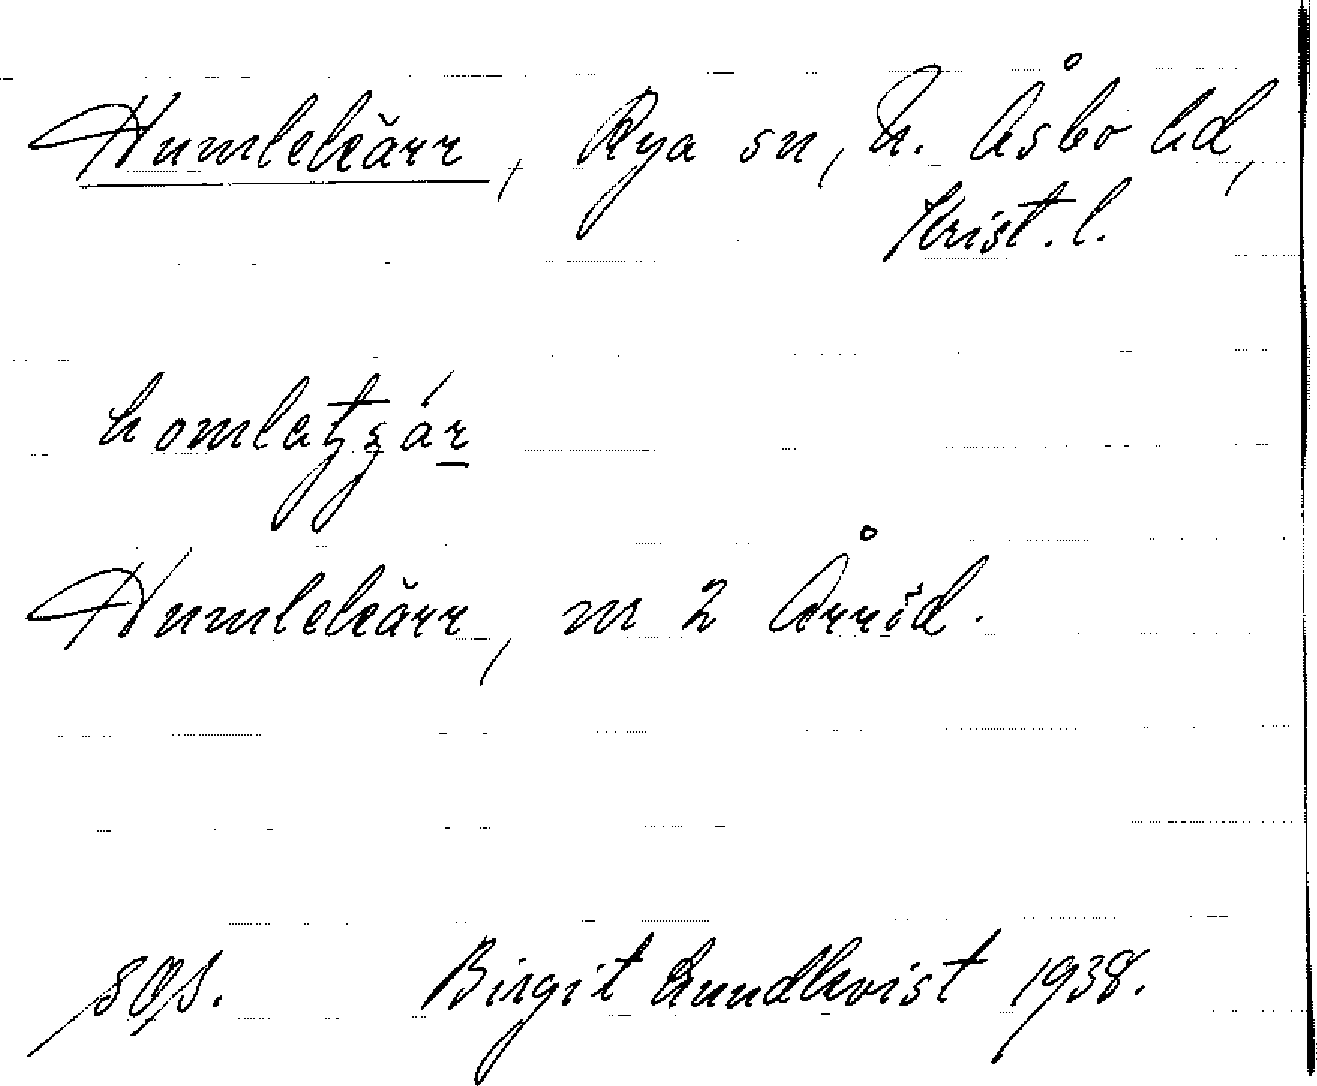 Humlekärr, Rya sn, N. Åsbo hd,
Krist. l.
Humlekärr, nr 2 Årröd.
SOS. Birgit Lundkvist 1938.